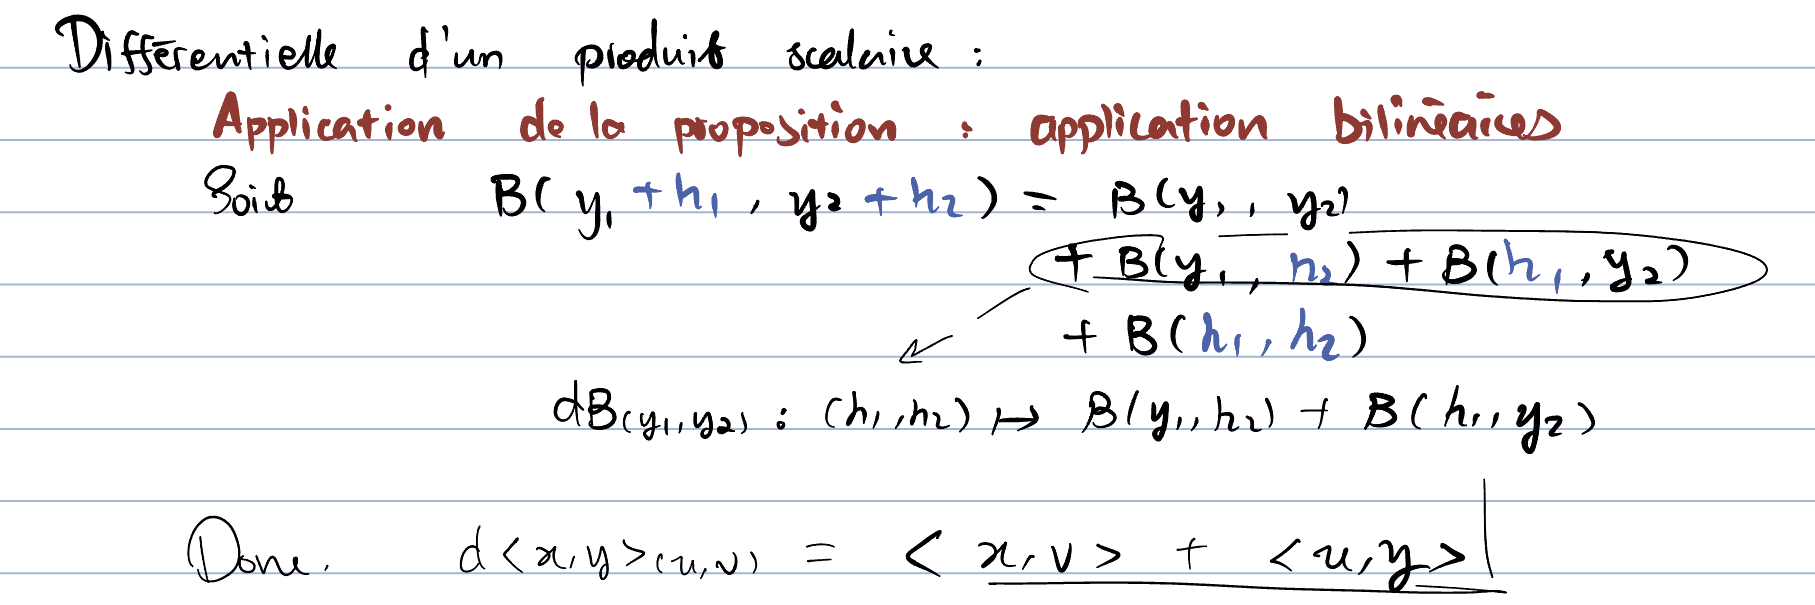 Différentielle d'un produit scalaire :
Application de la proposition : application bilinéaires
Soit B( y₁ + h₁ , y₂ + h₂ ) = B(y₁ , y₂)
+ B(y₁ , h₂) + B(h₁ , y₂)
+ B( h₁ , h₂ )
dB(y₁, y₂) : (h₁ , h₂) ↦ B(y₁, h₂) + B( h₁, y₂ )
Donc. d<x,y>(u,v) = < x, v > + < u, y >